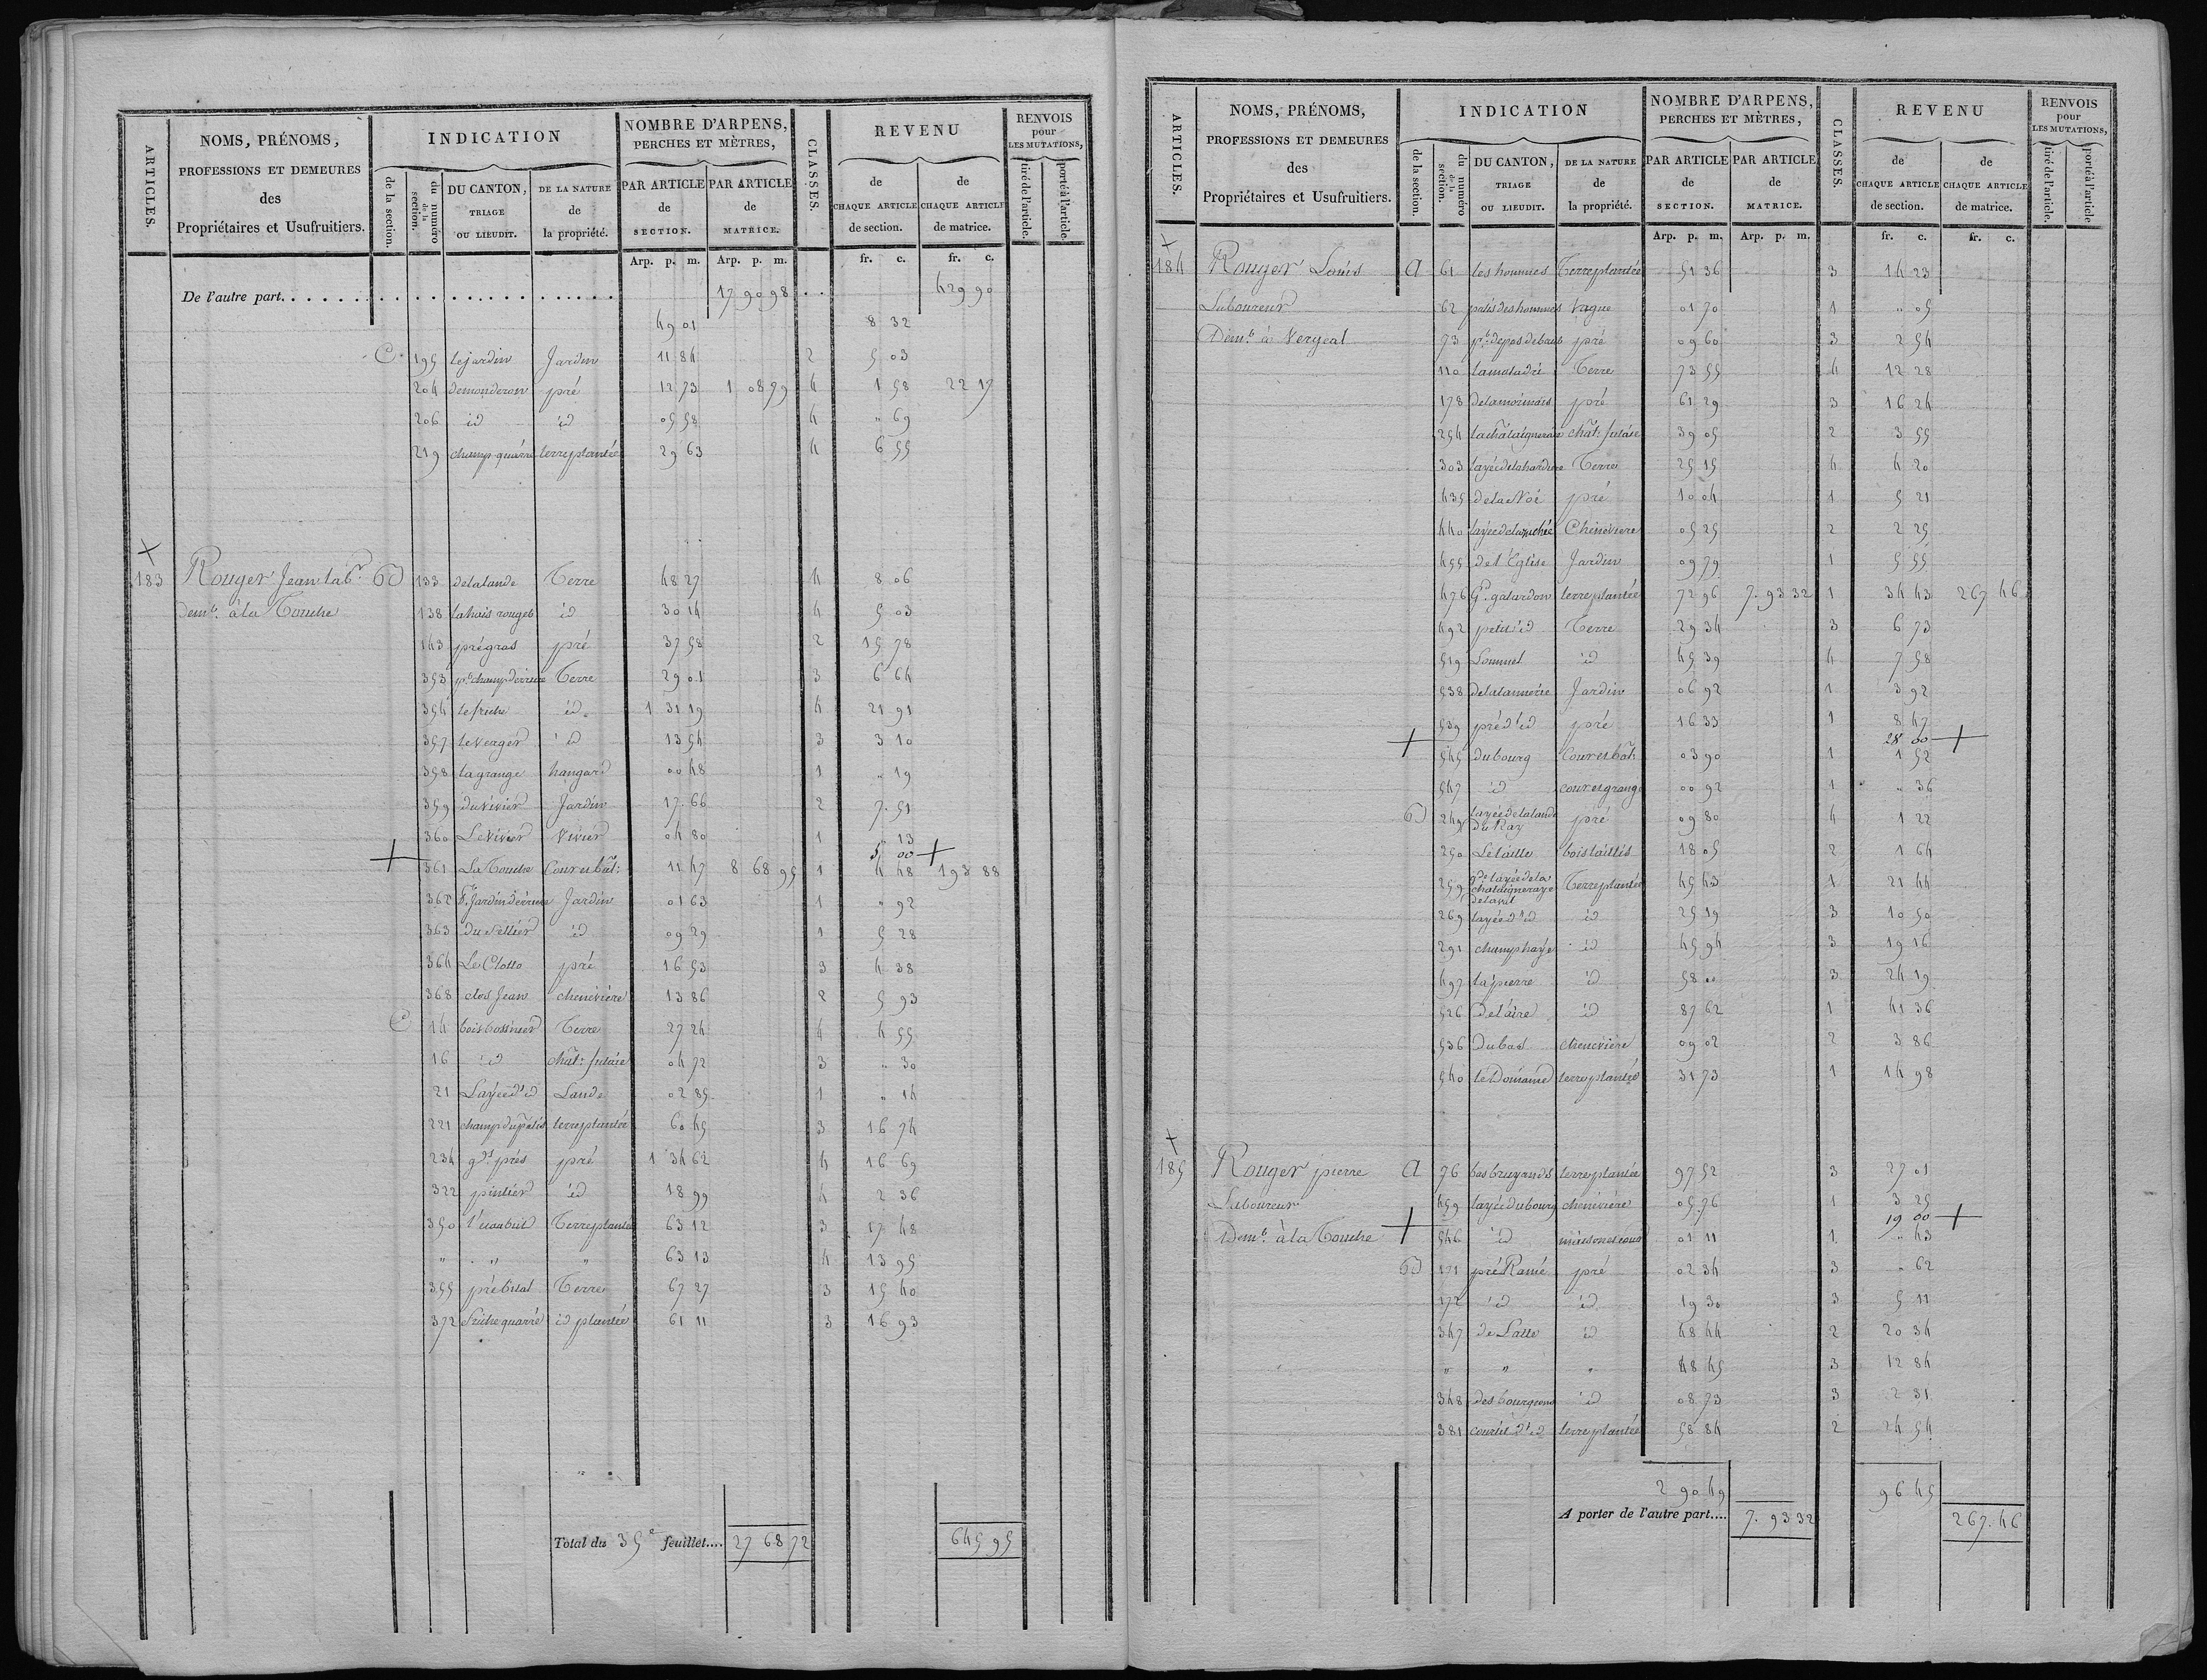 ARTICLES.
NOMS, PRÉNOMS,
PROFESSIONS ET DEMEURES
des
Propriétaires et Usufruitiers.
INDICATION
de la section.
du numéro de la section.
DU CANTON,
TRIAGE
OU LIEUDIT.
DE LA NATURE
de
la propriété.
NOMBRE D'ARPENS,
PERCHES ET MÈTRES,
PAR ARTICLE de SECTION.
PAR ARTICLE de MATRICE.
CLASSES.
REVENU
de CHAQUE ARTICLE de section.
de CHAQUE ARTICLE de matrice.
RENVOIS
pour
LES MUTATIONS,
tiré de l'article.
porté à l'article.
Arp. p. m. Arp. p. m. fr. c. fr. c.
De l'autre part. 17 90 98 429 90
49 01 8 32
C. 195 le jardin Jardin 11 84 2 5 03
204 demonderon pré 12 73 1 08 79 4 1 58 22 17
206 id id 05 58 4 " 69
219 champ quarré terre plantée 29 63 4 6 55
183 Rouger Jean labr. B 133 delalande Terre 48 27 4 8 06
demt. à la Touche 138 lahais rouget id 30 14 4 5 03
143 pré gras pré 37 58 2 15 78
353 pt. champ derriere Terre 29 01 3 6 64
354 le friche id. 1 31 19 4 21 91
357 le verger id 13 54 3 3 10
358 la grange hangard 00 48 1 " 19
359 du vivier Jardin 17.66 2 7.51
360 Le Vivier Vivier 04 80 1 " 13
5 00
361 La Touche Cour et bât: 11 47 8 68 95 1 4 48 193 88
362 Pt. Jardin derriere Jardin 01 63 1 " 92
363 Du Sellier id 09 29 1 5 28
364 Le Clotto pré 16 53 3 4 38
368 clos Jean chenévière 13 86 2 5 93
C 14 bois bossinier Terre 27 24 4 4 55
16 id chât: futaie 04 72 3 " 30
21 Layée d'id Lande 02 85 1 " 14
221 champ du patis terre plantée 60 45 3 16 74
234 gds. prés pré 1 34 62 4 16 69
322 pintier id 18 99 4 2 36
350 Terre plantée 63 12 3 17 48
" " " 63 13 4 13 95
355 pré bital Terre 67 27 3 15 40
372 friche quarré id plantée 61 11 3 16 93
Total du 35e feuillet.... 27 68 72 645 95
ARTICLES.
NOMS, PRÉNOMS,
PROFESSIONS ET DEMEURES
des
Propriétaires et Usufruitiers.
INDICATION
de la section.
du numéro de la section.
DU CANTON,
TRIAGE
OU LIEUDIT.
DE LA NATURE
de
la propriété.
NOMBRE D'ARPENS,
PERCHES ET MÈTRES,
PAR ARTICLE de SECTION.
PAR ARTICLE de MATRICE.
CLASSES.
REVENU
de CHAQUE ARTICLE de section.
de CHAQUE ARTICLE de matrice.
RENVOIS
pour
LES MUTATIONS,
tiré de l'article.
porté à l'article.
Arp. p. m. Arp. p. m. fr. c. fr. c.
184 Rouger Louis A 61 les hommes Terre plantée 51 36 3 14 23
Laboureur 62 patis des hommes Vague 01 70 1 " 05
Demt. à Vergeal 73 pré 09 60 3 2 54
110 la maladrie Terre 73 55 4 12 28
178 pré 61 29 3 16 24
254 la châtaigneraie chât: futaie 39 05 2 3 55
303 Terre 25 15 4 4 20
435 de la Noë pré 10 04 1 5 21
440 Chénévière 05 25 2 2 25
455 de l'Eglise Jardin 09 79 1 5 55
476 Gd. galardon terre plantée 72 96 7.93 32 1 34 43 267 46
492 petit id Terre 29 34 3 6 73
519 id 45 39 4 7 58
538 de la tannerie Jardin 06 92 1 3 92
539 pré d'id pré 16 33 1 8 47
28 00
545 du bourg Cour et bât: 03 90 1 1 52
547 id cour et grange 00 92 1 " 36
B 249 layée de la lande du Ray pré 09 80 4 1 22
250 Le taillis bois taillis 18 05 2 1 64
259 de layée de la chataigneraye Terre plantée 45 43 1 21 44
269 layée d'id id 25 19 3 10 50
291 champ haye id 45 94 3 19 16
497 la pierre id 58 00 3 24 19
526 De l'aire id 87 62 1 41 36
536 Du bas chenevière 09 02 2 3 86
540 le Domaine terre plantée 31 73 1 14 98
185 Rouger pierre A 76 terre plantée 97 52 3 27 01
Laboureur 459 layée du bourg chenévière 05.76 1 3 25
19 00
Demt. à la Touche 546 id maison et cour 01 11 1. " 43
B 171 pré Ramé pré 02 34 3 " 62
172 id id 19 30 3 5 11
347 de Latte id 48 44 2 20 34
" " " 48 45 3 12 84
348 des bourgeons id 08 73 3 2 31
381 courtil d'id terre plantée 58 84 2 24 54
2 90 49 96 45
A porter de l'autre part.... 7.93 32 267.46